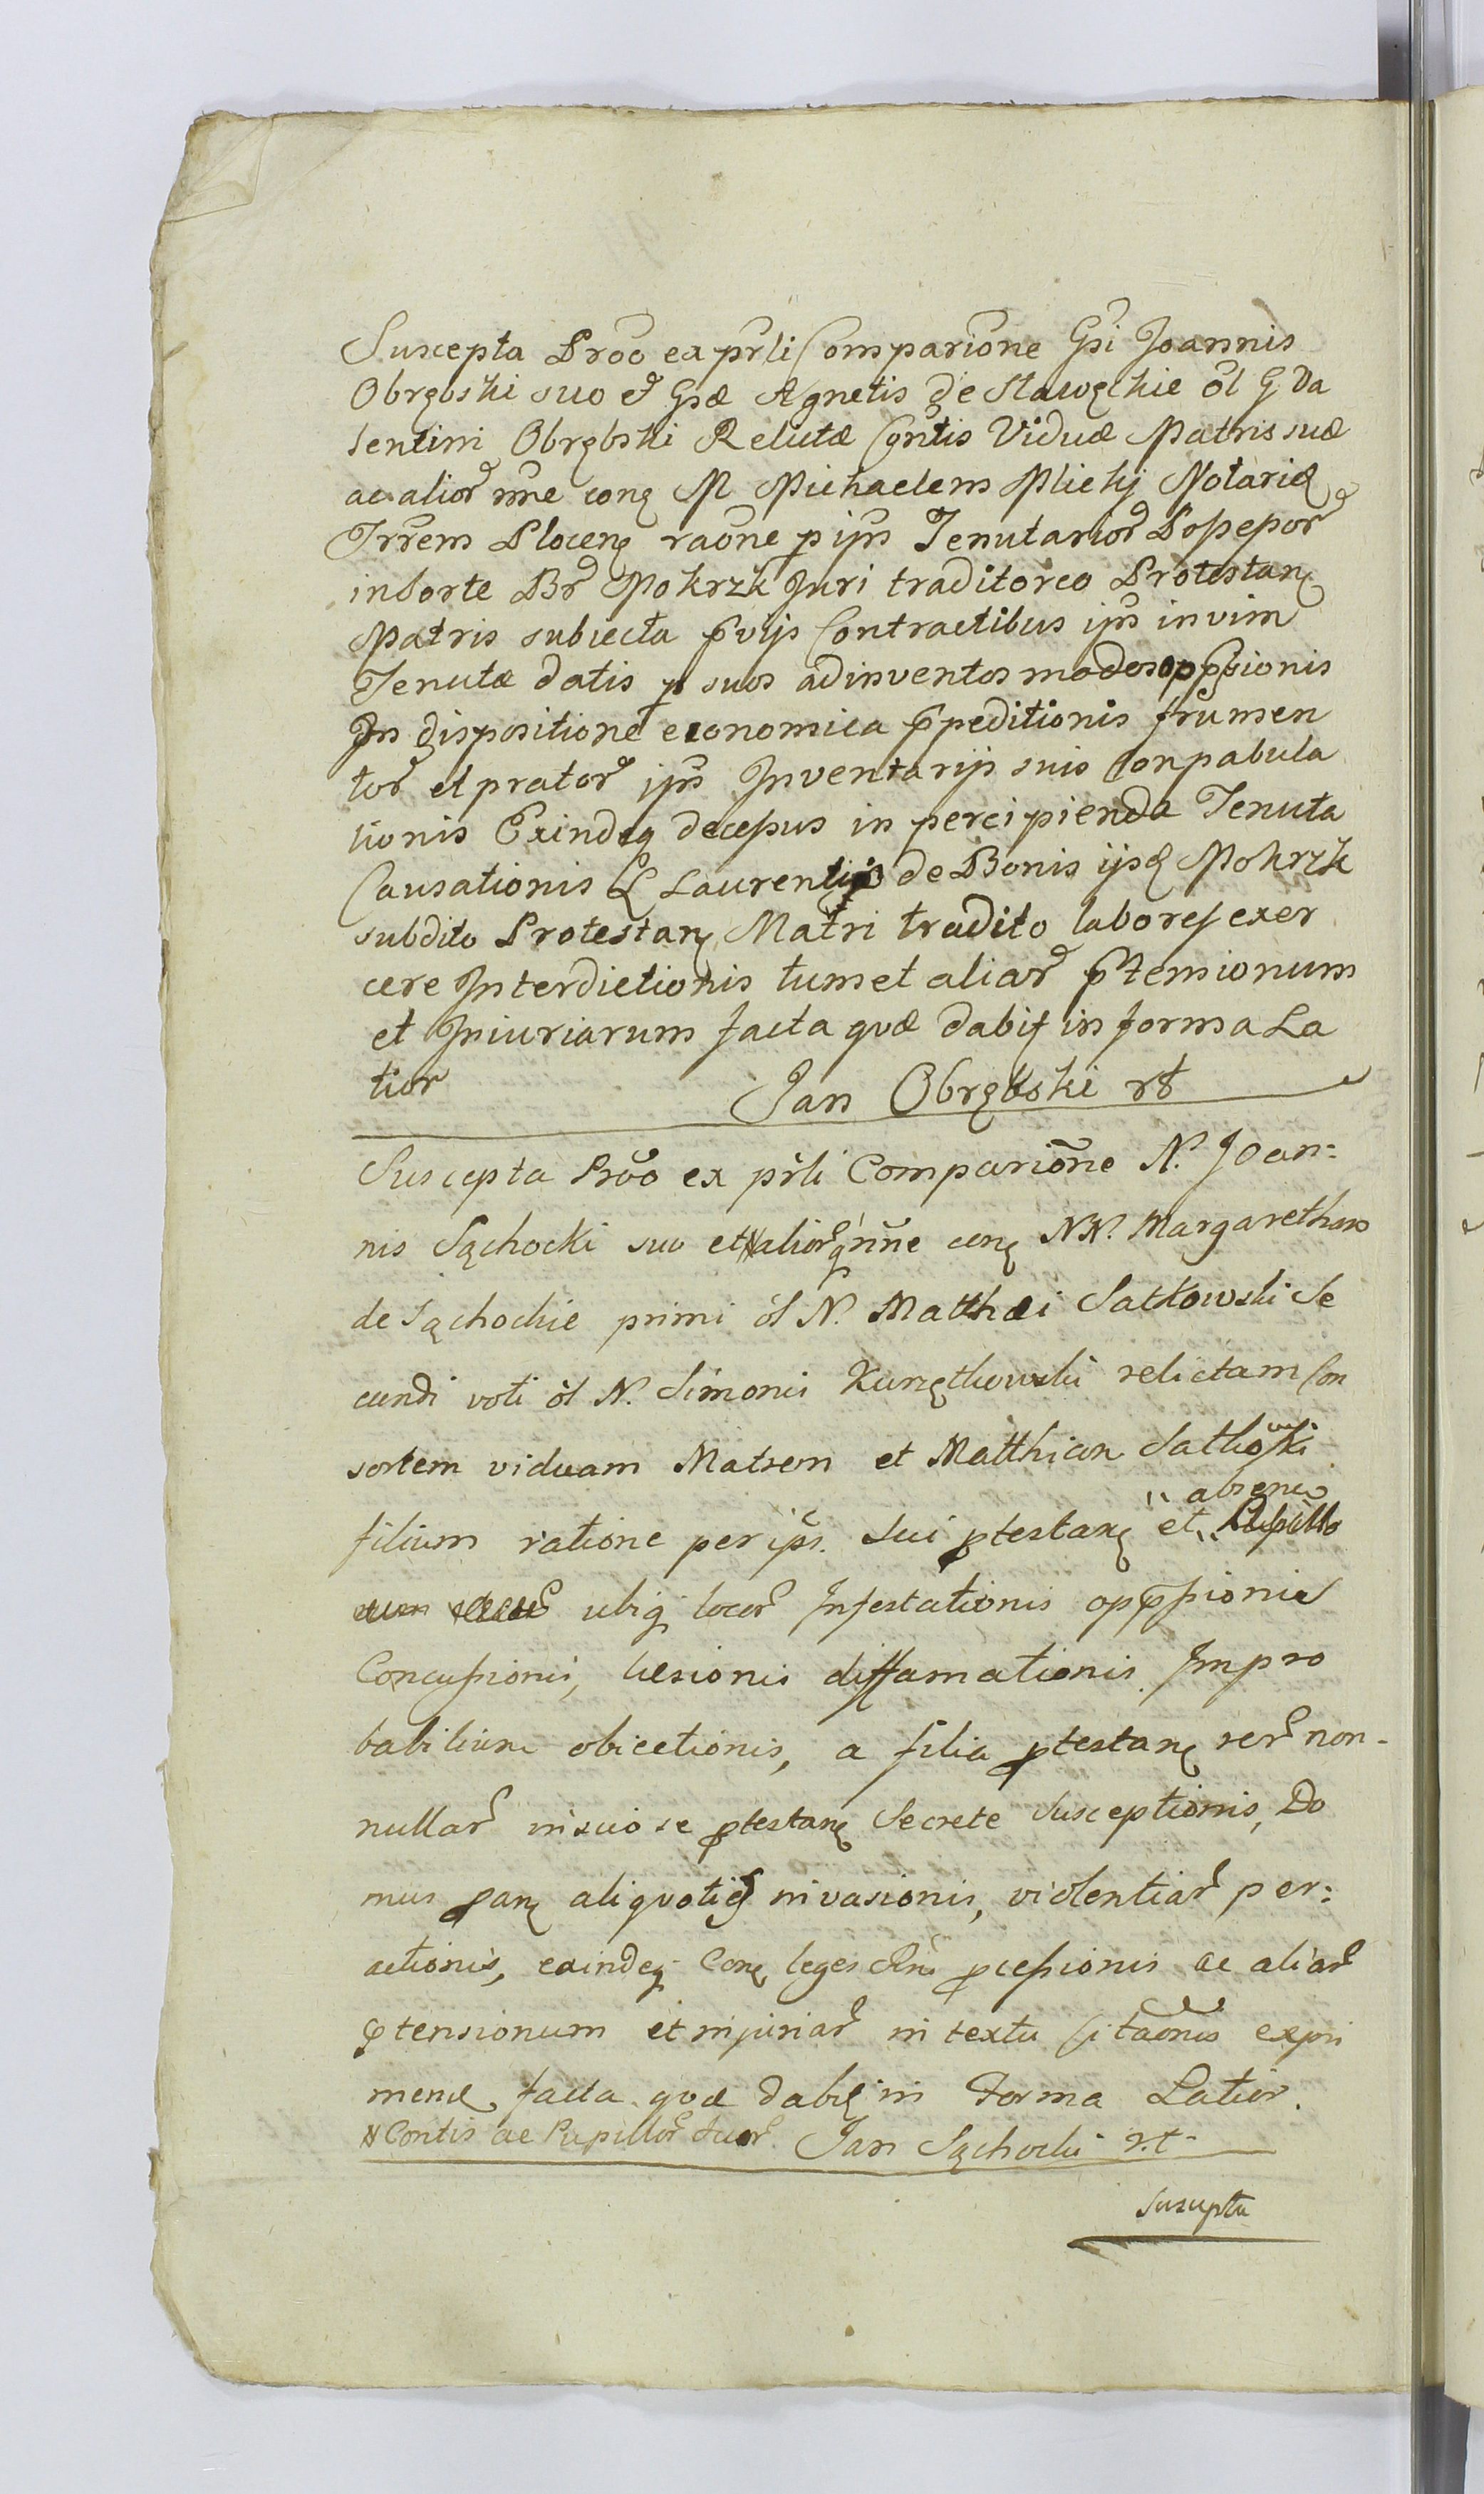 Suscepta Proo ex prli Comparione Gsi Joannis
Obrębski suo et Gsæ Agnetis de Sławęckie ol G Va
lentini Obrębski Relictæ Contis Viduæ Matris suæ
ac alior nne conę M Michaelem Mlicki Notariū
Trrem Plocenę raone p ipm Tenutarior Possessor
in sorte Br Mokrzk Juri traditoreo Protestanę
Matris subiecta pvijs Contractibus ipi in vim
Tenutæ datis p suos adinventos modos oppssionis
In dispositione economica Expeditionis frumen
tor et prator ipis Inventarijs suis Conpabula
tionis Exindeq decessus in percipienda Tenuta
Causationis L Laurentio de Bonis ijsd Mokrzk
subdito Protestanę Matri tradito labores exer
cere Interdictionis tum et aliar ptensionum
et Iniuriarum facta quæ dabit in forma La
tior
Jan Obrębski rt
Suscepta Proo ex prli Comparione N. Joan=
nis Sąchocki suo et # alior q nne conę NN. Margaretham
de Sąchockie primi ol N. Matthæi Satkowski Se
cundi voti ol N. Simonis Kurzętkowski relictam Con
sortem viduam Matrem et Matthiam Satkowski
filium ratione per ips. Sui ptestanę et absenię
ubiq locor Infestationis oppssionis
Concussionis, læsionis diffamationis Impro
babilium obiectionis, a filia ptestanę rer non-
nullar inscio se ptestanę Secrete Susceptionis, Do
mus panę aliquoties invasionis, violentiar per=
actionis, exindeq Conę leges Rni pcessionis ac aliar
ptensionum et injuriar in textu Citaonis expri
mend facta quæ dabit in Forma Latior.
# Contis ac Pupillor suor Jan Sąchocki r.t.
Suscepta